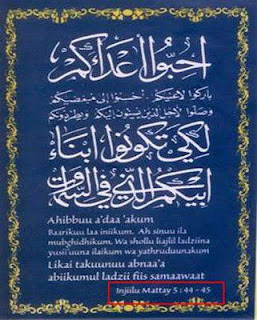 احبّوا أعداكم
باركوا لاعنيكم . أحسنوا إلى مبغضيكم
وصلوا لأجل الذين يسيئون إليكم ويطردونكم
لكي تكونوا أبناء
أبيكم الذي في السماوات
Ahibbuu a'daa 'akum
Baarikuu laa iniikum. Ah sinuu ila
mubghidhikum. Wa shollu liajlil ladziina
yusii'uuna ilaikum wa yathruduunakum
Likai takuunuu abnaa'a
abiikumul ladzii fiis samaawaat
Injiilu Mattay 5 : 44 - 45